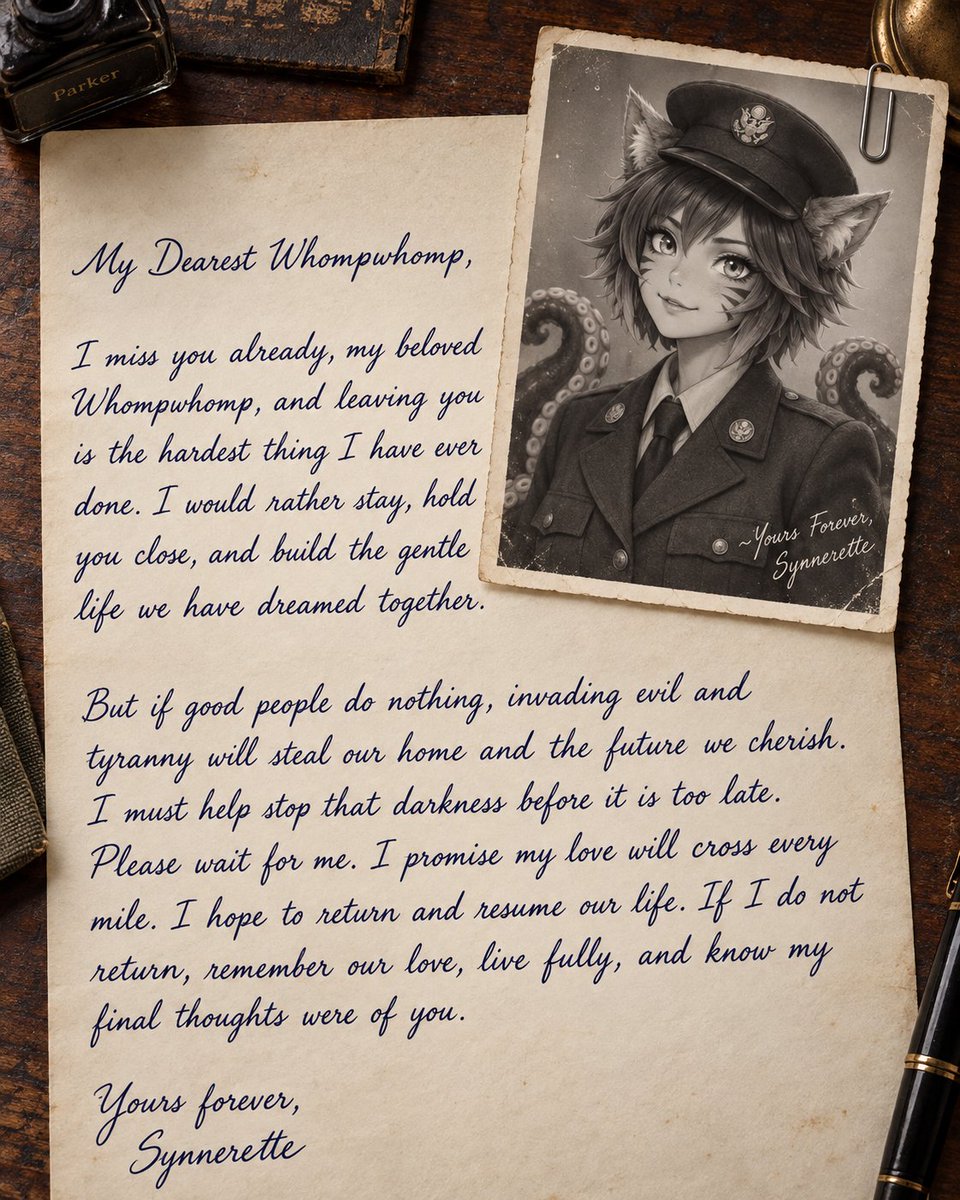 Parker
My Dearest Whompwhomp,
I miss you already, my beloved
Whompwhomp, and leaving you
is the hardest thing I have ever
done. I would rather stay, hold
you close, and build the gentle
life we have dreamed together.
~Yours Forever,
Synnerette
But if good people do nothing, invading evil and
tyranny will steal our home and the future we cherish.
I must help stop that darkness before it is too late.
Please wait for me. I promise my love will cross every
mile. I hope to return and resume our life. If I do not
return, remember our love, live fully, and know my
final thoughts were of you.
Yours forever,
Synnerette